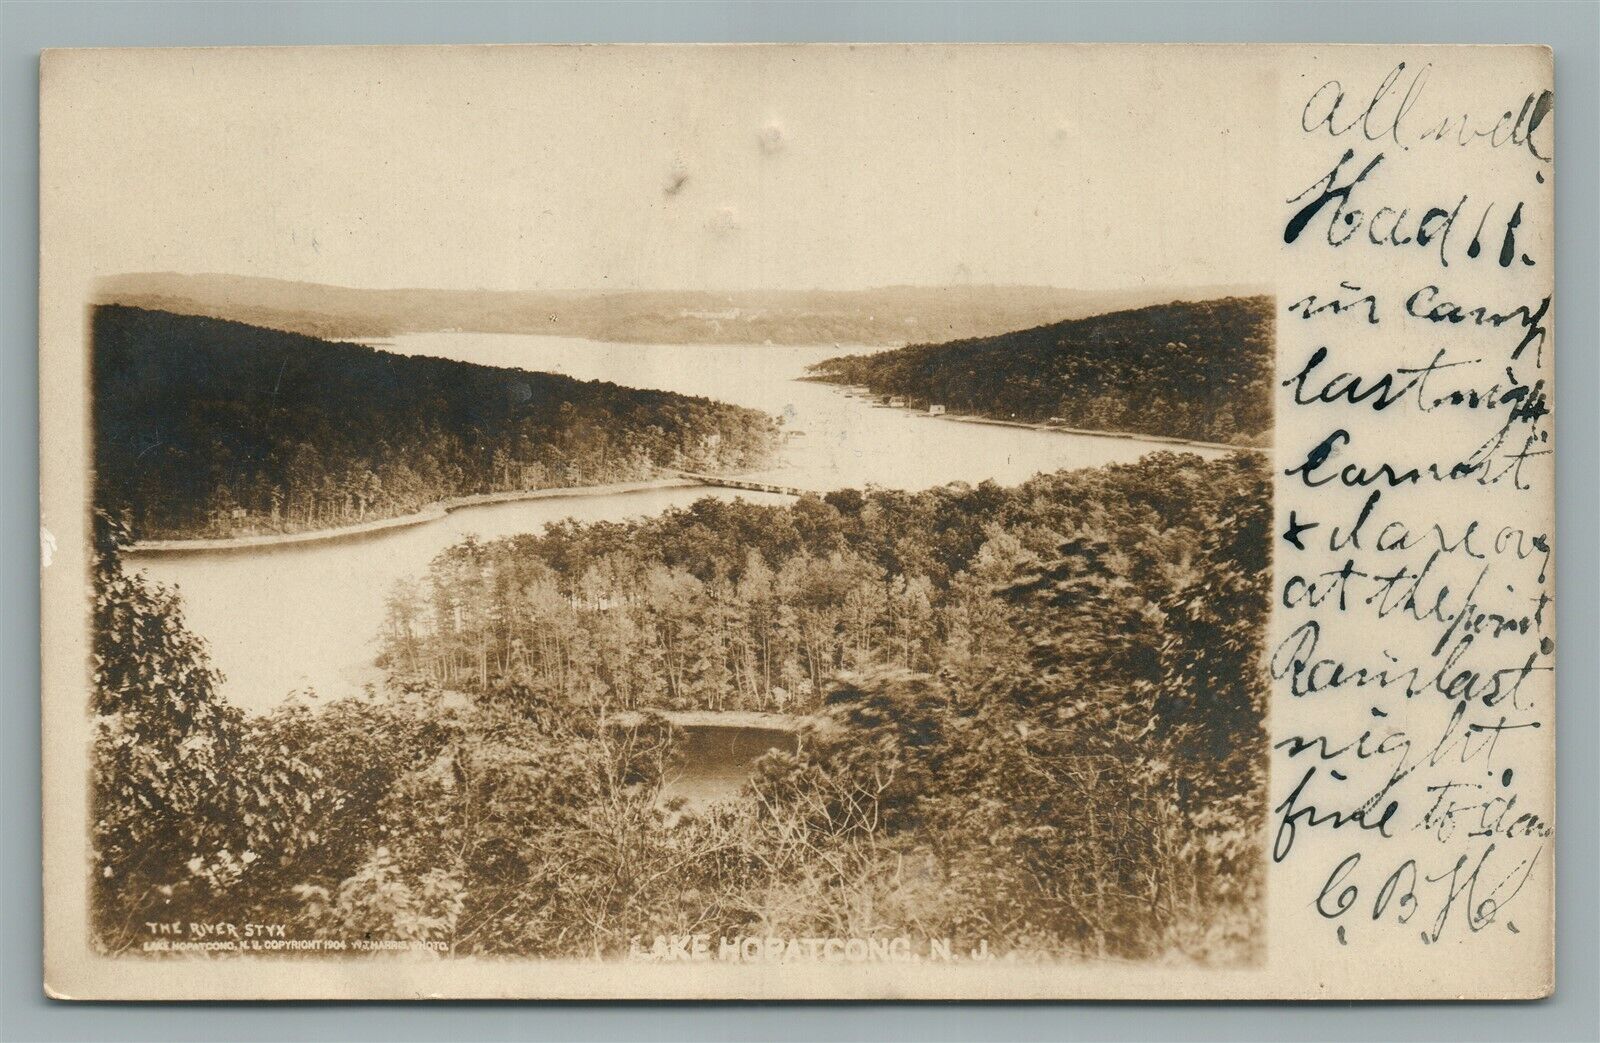 all well.
Had 11.
in camp
last night.
Earnest
& I are over
at the point.
Rain last
night.
fine to day
C. B. H.
THE RIVER STYX
LAKE HOPATCONG, N. J. COPYRIGHT 1904 W.J. HARRIS, PHOTO.
LAKE HOPATCONG, N. J.